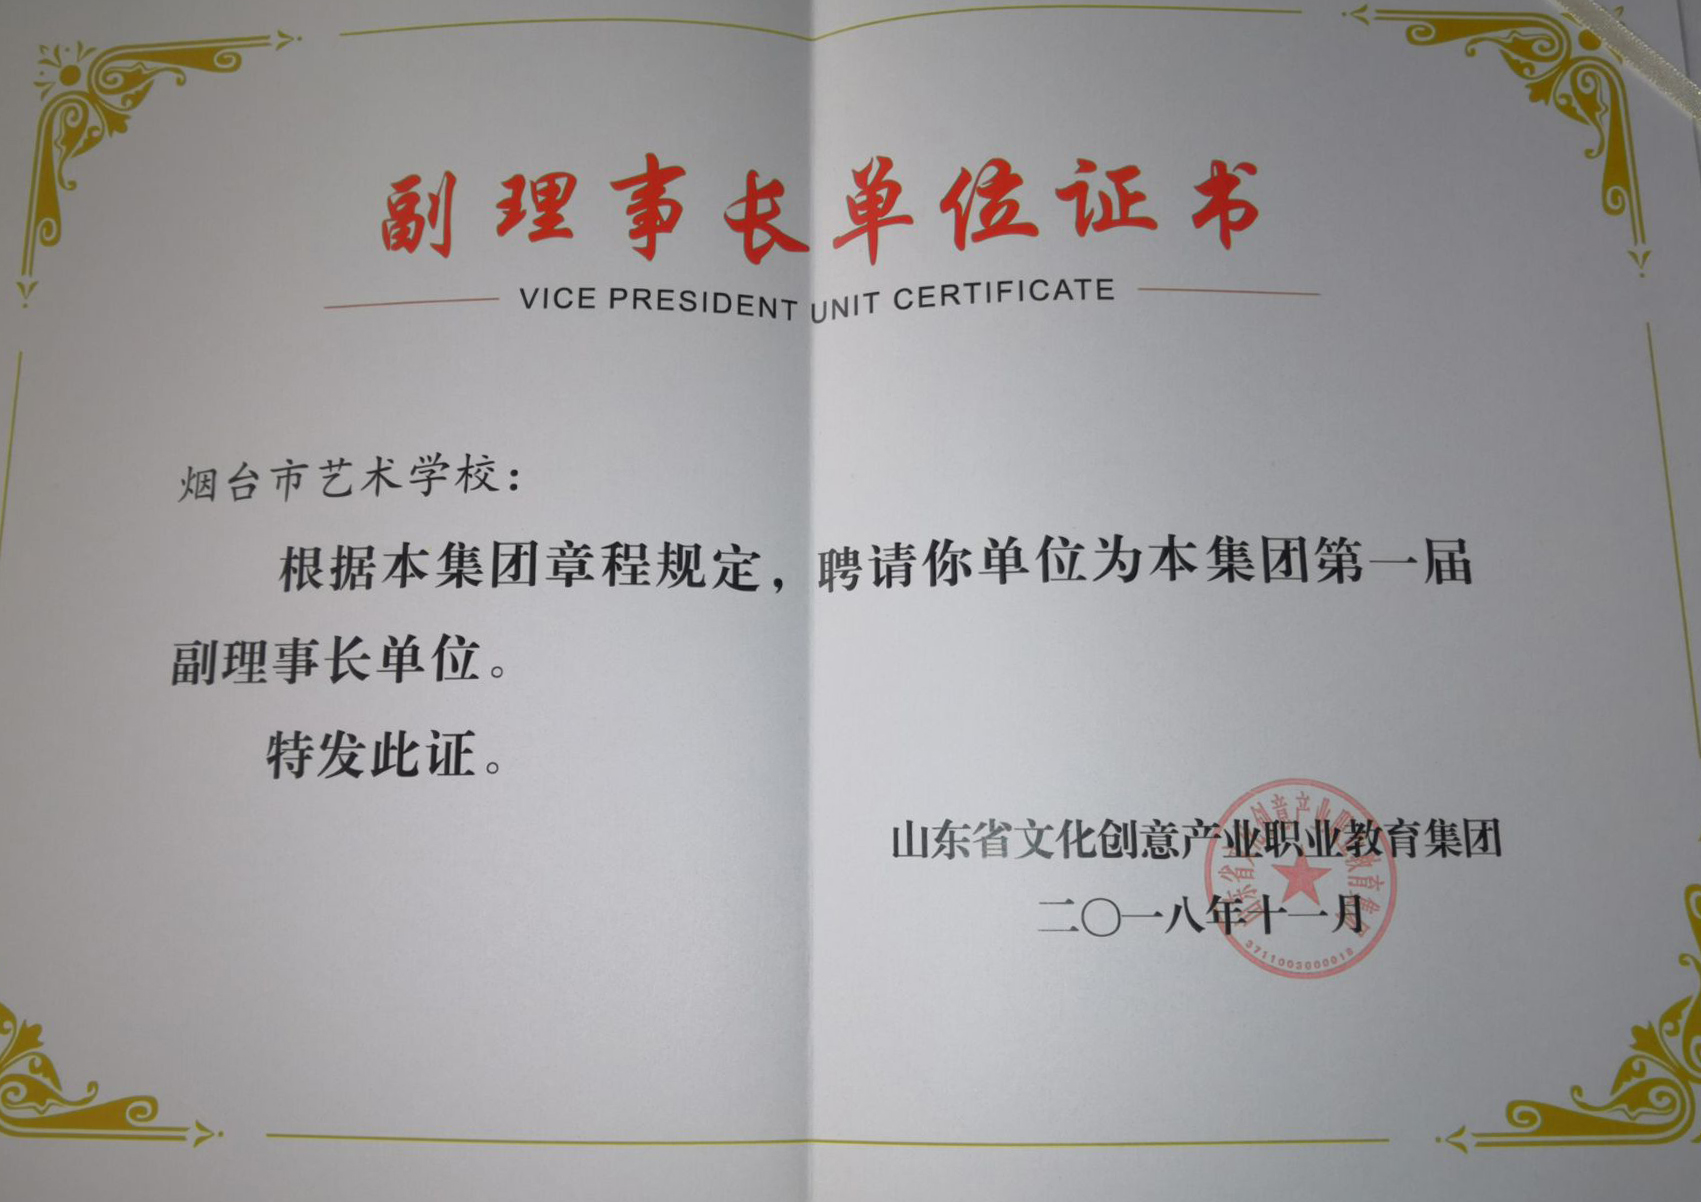 副理事长单位证书
VICE PRESIDENT UNIT CERTIFICATE
烟台市艺术学校：
根据本集团章程规定，聘请你单位为本集团第一届
副理事长单位。
特发此证。
山东省文化创意产业职业教育集团
二〇一八年十一月